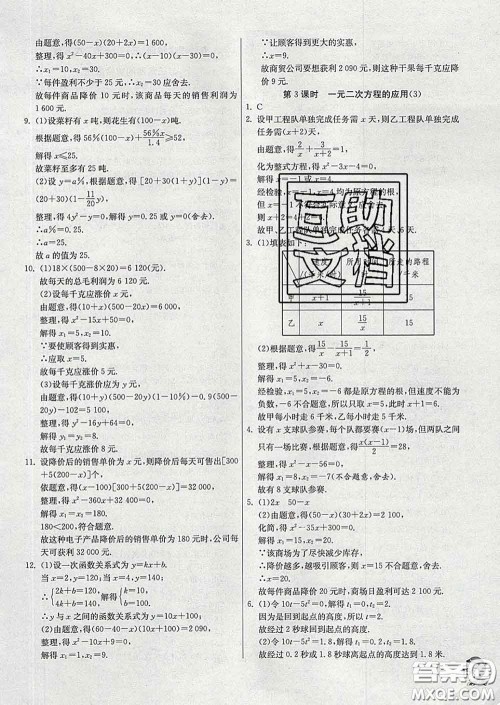 由题意,得(50-x)(20+2x)=1 600,
整理,得x²-40x+300=0,∴(x-10)(x-30)=0.
∴x₁=10,x₂=30.
∵每件盈利不少于25元,
∴x₂=30应舍去.
故每件商品降价10元时,该商品每天的销售利润为
1 600元.
9. (1)设菜籽有x吨,则花生有(100-x)吨.
解得x≤25.
故菜籽至多有25吨.
(2)设y=a%,
整理,得4y²-y=0.解得y=0.25或y=0(舍去).
∴a%=0.25.
故a的值为25.
10. (1)18×(500-8×20)=6 120(元).
故每天的总毛利润为6 120元.
(2)设每千克应涨价x元,
由题意,得(10+x)(500-20x)=6 000.
整理,得x²-15x+50=0.
解得x₁=5,x₂=10.
∵要使顾客得到实惠,
∴应取x=5.
故每千克应涨价5元.
(3)设每千克应涨价为y元,
整理,得y²-16y+64=0.
解得y₁=y₂=8.
故每千克应涨价8元.
11. 设降价后的销售单价为x元,则降价后每天可售出[300
+5(200-x)]个.
依题意,得(x-100)[300+5(200-x)]=32 000.
整理,得x²-360x+32 400=0.
解得x₁=x₂=180.
180<200,符合题意.
故这种电子产品降价后的销售单价为180元时,公司每
天可获利32 000元.
12. (1)设一次函数关系式为y=kx+b.
当x=2,y=120;当x=4,y=140,
∴{2k+b=120, 4k+b=140, 解得{k=10, b=100.
∴y与x之间的函数关系式为y=10x+100;
(2)由题意,得(60-40-x)(10x+100)=2 090,
整理,得x²-10x+9=0,
解得x₁=1,x₂=9.
∵让顾客得到更大的实惠,
∴x=9.
故商贸公司要想获利2 090元,则这种干果每千克应降
价9元.
第3课时 一元二次方程的应用(3)
1. C
2. 设甲工程队单独完成任务需x天,则乙工程队单独完成
任务需(x+2)天,
由题意,得2/x+3/(x+2)=1.
化为整式方程,得x²-3x-4=0,
解得x=-1或x=4.
3. (1)填表如下:
甲 x+1 15/(x+1) 15
乙 x 15/x 15
(2)根据题意,得15/x-15/(x+1)=1/2.
整理,得x²+x-30=0.
解得x₁=5,x₂=-6.
经检验,x₁=5,x₂=-6都是原方程的根,但速度不能为
负数,-6不合题意,所以只取x=5,此时x+1=6.
故甲每小时走6千米,乙每小时走5千米.
4. 设有x支球队参赛,每个队都要赛(x-1)场,但两队之间
只有一场比赛.根据题意,得x(x-1)/2=28.
解得x₁=8,x₂=-7(不合题意,舍去).
故有8支球队参赛.
5. (1)2x 50-x
(2)由题意,得(50-x)(30+2x)=2 100,
化简,得x²-35x+300=0,
解得x₁=15,x₂=20.
∵该商场为了尽快减少库存,
∴降价越多,越吸引顾客,
∴x=20.
故每件商品降价20元时,商场日盈利可达2 100元.
6. (1)令10t-5t²=0,解得t₁=0,t₂=2.
因为是回到起点,所以t=0舍去.
故经过2秒球回到起点的高度.
(2)令10t-5t²=1.8,解得t₁=0.2,t₂=1.8.
故经过0.2秒或1.8秒球离起点的高度达到1.8米.
互助
文档
答案圈
MXQE.COM